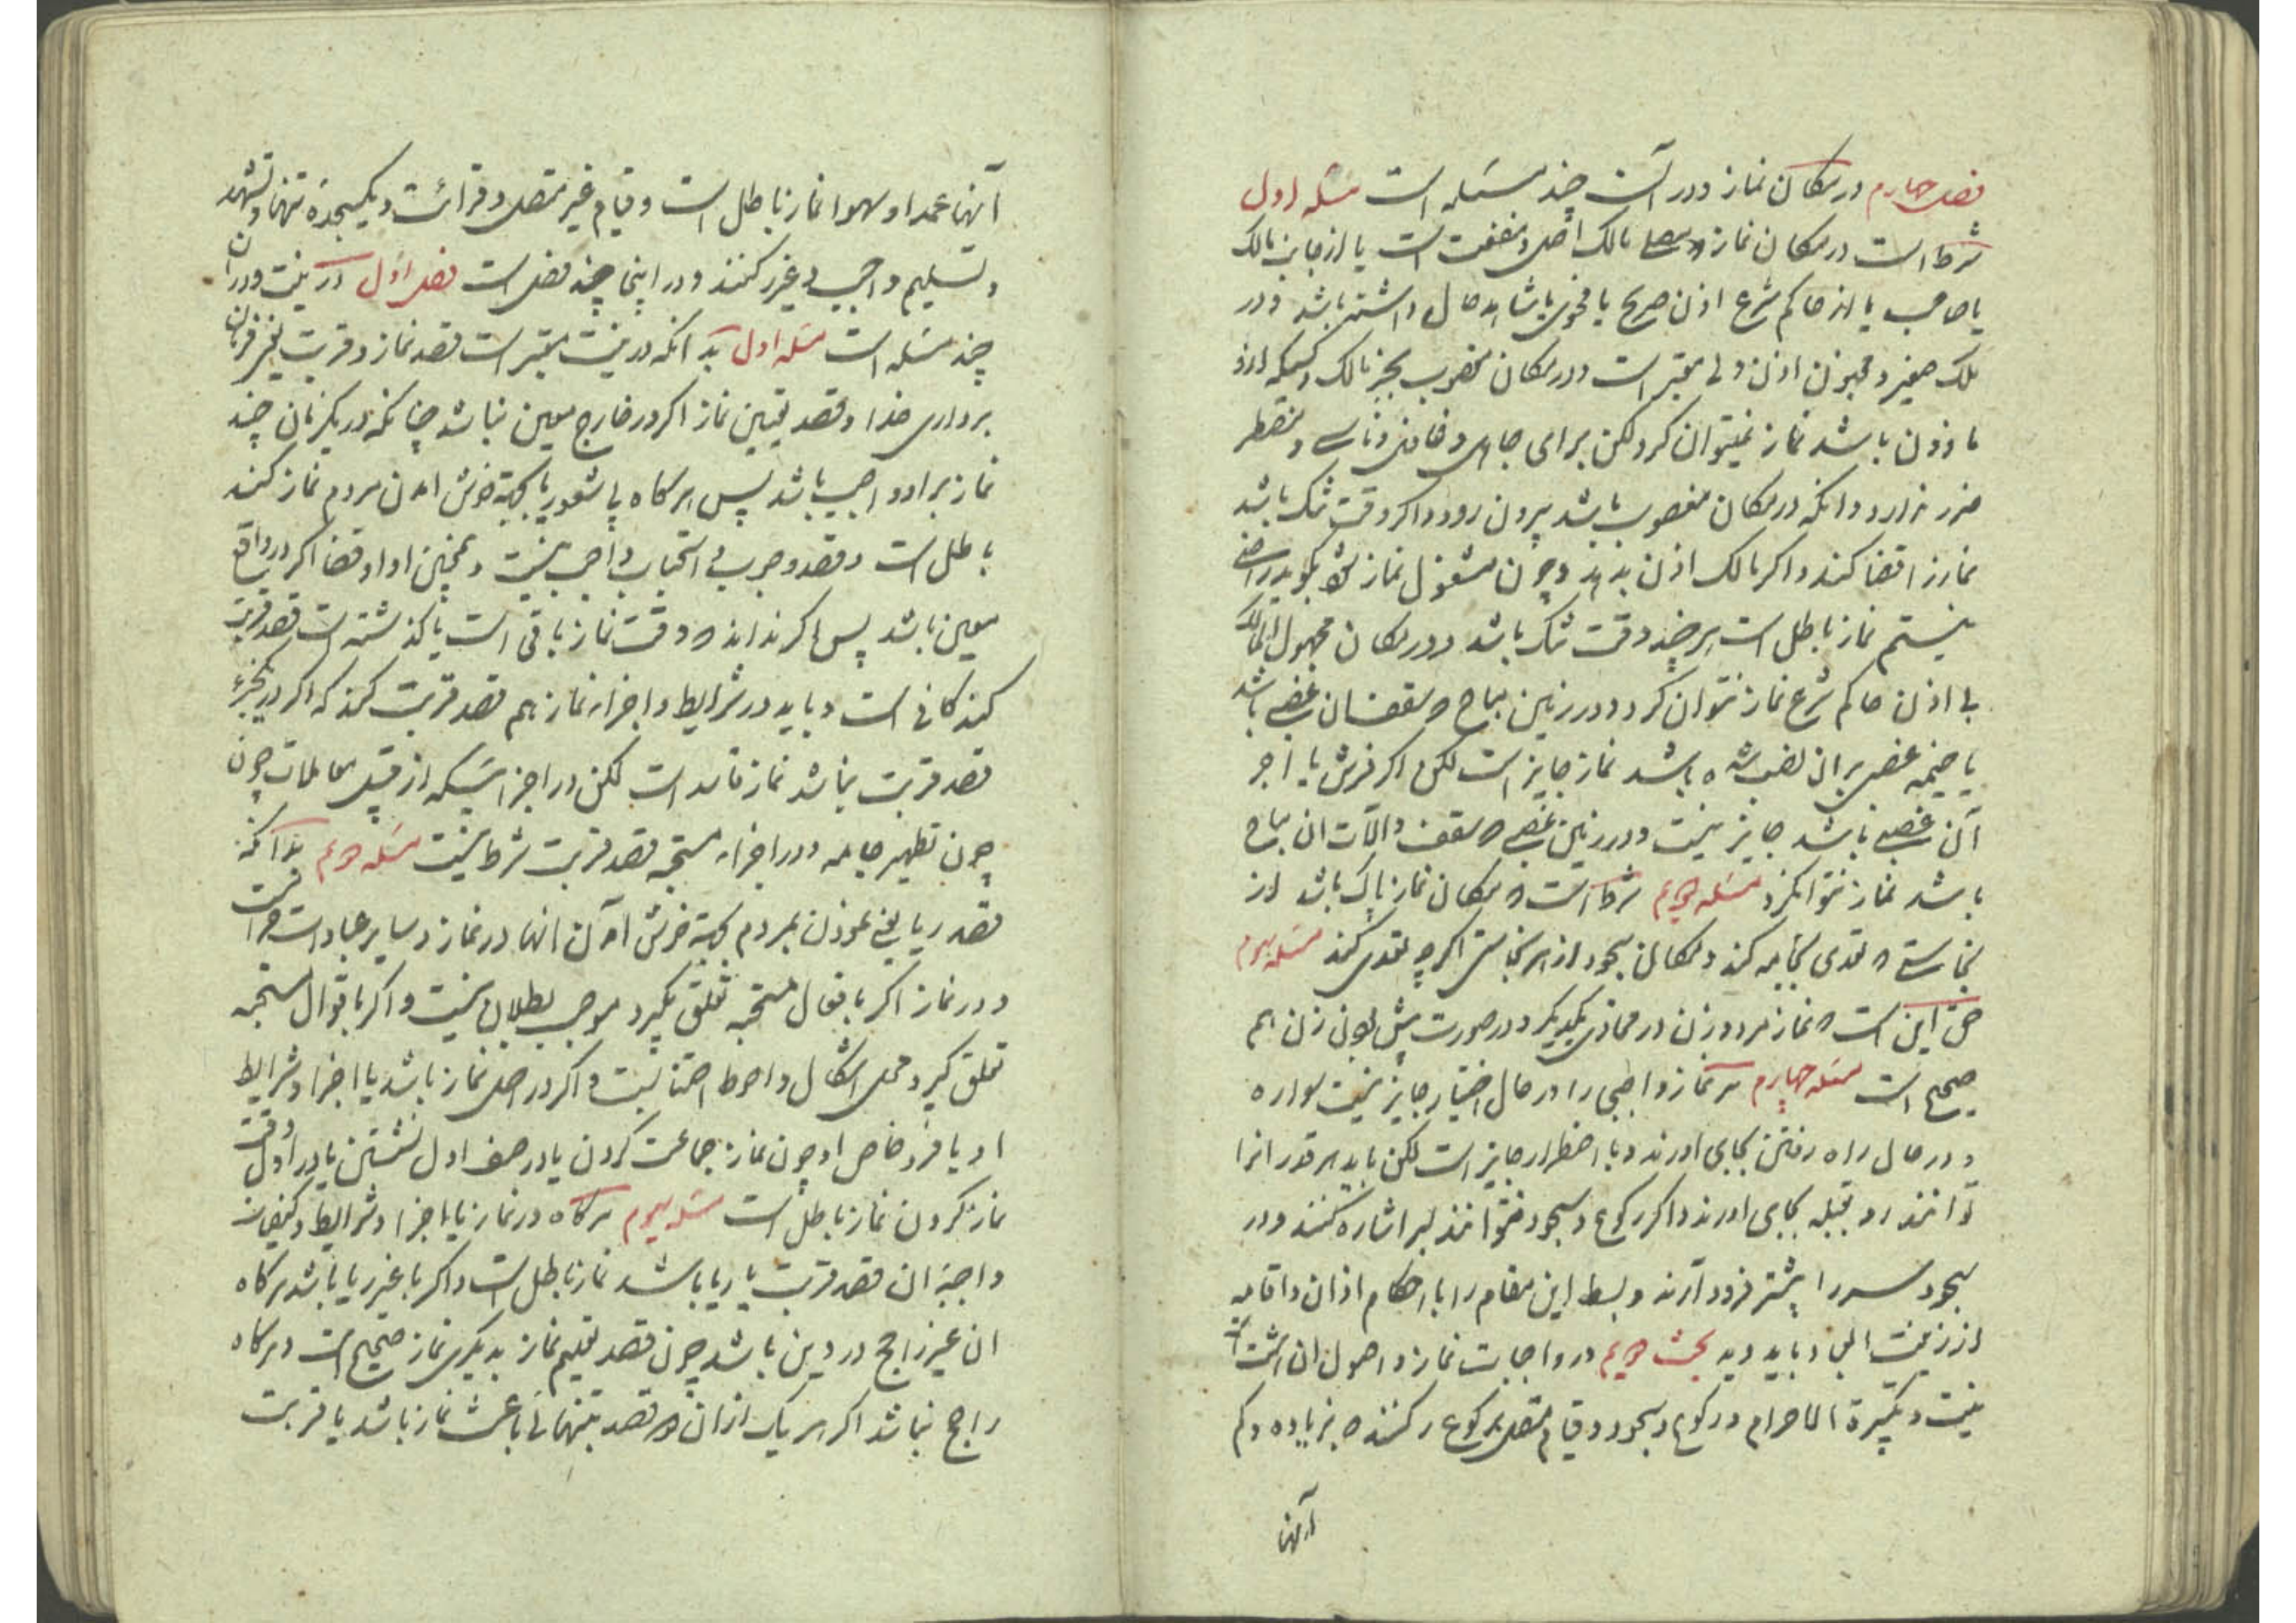 فصل چهارم در مکان نماز و در آن چند مسئله است مسئله اول
شرط است در مکان نماز که مصلی مالک اصل و منفعت است یا از جانب مالک
یا صاحب یا از حاکم شرع اذن صریح یا فحوی یا شاهد حال داشته باشد و در
ملک صغیر و مجنون اذن ولی معتبر است و در مکان مغصوب بجز مالک و کسیکه ازو
ماذون باشد نماز نمیتوان کرد لکن برای جاهل و غافل و ناسی و مضطر
ضرر ندارد و انکه در مکان مغصوب باشد بیرون رود و اکر وقت تنک باشد
نماز را قضا کند و اکر مالک اذن بدهد و چون مشغول نماز شد بکوید راضی
نیستم نماز باطل است هر چند وقت تنک باشد و در مکان مجهول المالک
بی اذن حاکم شرع نماز نتوان کرد و در زمین مباح که سقف ان غصبی باشد
یا خیمه غصبی بر ان نصب شده باشد نماز جایز است لکن اکر فرش یا اجر
آن غصبی باشد جایز نیست و در زمین غصبی که سقف و الات ان مباح
باشد نماز نتوانکرد مسئله دویم شرط است که مکان نماز پاک باشد از
نجاستی که تعدی بجامه کند و مکان سجود از هر نجاستی اکر چه تعدی نکند مسئله سیوم
حق این است که نماز مرد و زن در محاذی یکدیکر و در صورت پیش بودن زن هم
صحیح است مسئله چهارم هر نماز واجبی را در حال اختیار جایز نیست سواره
و در حال راه رفتن بجای اورند و با اضطرار جایز است لکن باید هر قدر انرا
توانند رو بقبله بجای اورند و اکر رکوع و سجود نتوانند بسر اشاره کنند و در
سجود سر را پیشتر فرود آرند و بسط این مقام را با احکام اذان و اقامه
از زینت العباد باید دید بحث دویم در واجبات نماز و اصول ان هشت است
نیت و تکبیرة الاحرام و رکوع و سجود و قیام متصل برکوع رکنند که بزیاده و کم
آنها
آنها عمدا و سهوا نماز باطل است و قیام غیر متصل و قرائت و یکسجده تنها و تشهد
و تسلیم واجب غیر رکنند و در اینجا چند فصل است فصل اول در نیت و در ان
چند مسئله است مسئله اول بدانکه در نیت معتبر است قصد نماز و قربت یعنی فرمان
برداری خدا و قصد تعیین نماز اکر در خارج معین نباشد چنانکه در یکزمان چند
نماز بر او واجب باشد پس هرکاه بی شعور یا بجهة خوش امدن مردم نماز کند
باطل است و قصد وجوب و استحباب واجب نیست و همچنین ادا و قضا اکر در واقع
معین باشد پس اکر نداند که وقت نماز باقی است یا کذشته است قصد قربت
کند کافی است و باید در شرایط و اجزاء نماز هم قصد قربت کند که اکر در یکجزء
قصد قربت نباشد نماز فاسد است لکن در اجزائیکه از قبیل معاملات چون
چون تطهیر جامه و در اجزاء مستحبه قصد قربت شرط نیست مسئله دویم بدانکه
قصد ریا یعنی نمودن بمردم بجهة خوش آمدن انها در نماز و سایر عبادات حرام است
و در نماز اکر بافعال مستحبه تعلق بکیرد موجب بطلان نیست و اکر باقوال مستحبه
تعلق کیرد محل اشکال و احوط اجتناب است و اکر در اصل نماز باشد یا اجزا و شرایط
او یا فرد خاص او چون نماز جماعت کردن یا در صف اول نشستن یا در اول وقت
نماز کردن نماز باطل است مسئله سیوم هرکاه در نماز یا اجزا و شرایط و کیفیات
واجبه ان قصد قربت با ریا باشد نماز باطل است و اکر با غیر ریا باشد هرکاه
ان غیر راجح در دین باشد چون قصد تعلیم نماز بدیکری نماز صحیح است و هرکاه
راجح نباشد اکر هر یک از ان دو قصد بتنهائی باعث نماز باشد یا قربت